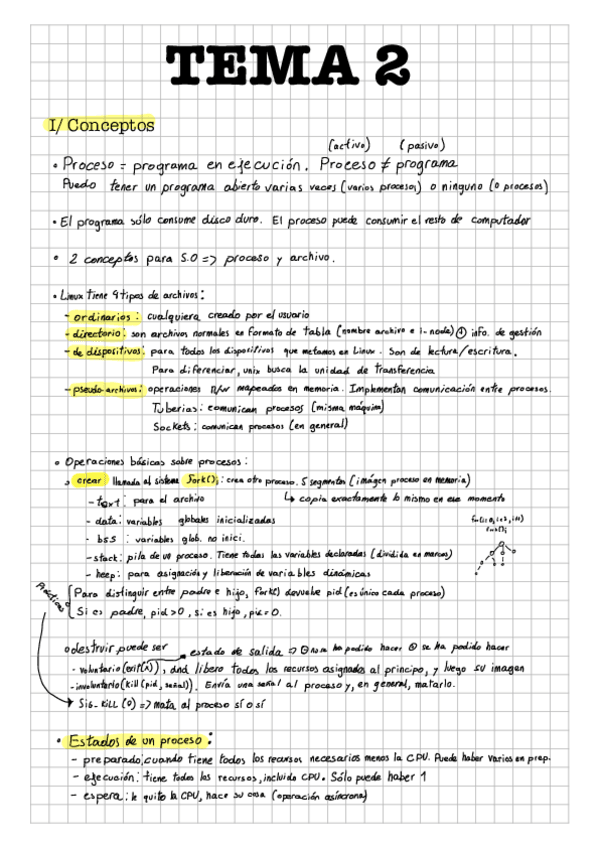 TEMA 2
I/ Conceptos
(activo) (pasivo)
• Proceso = programa en ejecución. Proceso ≠ programa
Puedo tener un programa abierto varias veces (varios procesos) o ninguno (0 procesos)
• El programa sólo consume disco duro. El proceso puede consumir el resto de computador
• 2 conceptos para S.O => proceso y archivo.
• Linux tiene 4 tipos de archivos:
- ordinarios: cualquiera creado por el usuario
- directorio: son archivos normales en formato de tabla (nombre archivo e i-node) + info. de gestión
- de dispositivos: para todos los dispositivos que metamos en Linux. Son de lectura/escritura.
Para diferenciar, unix busca la unidad de transferencia
- pseudo-archivos: operaciones R/W mapeados en memoria. Implementan comunicación entre procesos.
Tuberías: comunican procesos (misma máquina)
Sockets: comunican procesos (en general)
• Operaciones básicas sobre procesos:
crear llamada al sistema fork(); crea otro proceso. 5 segmentos (imágen proceso en memoria)
- text: para el archivo ↳ copia exactamente lo mismo en ese momento
- data: variables globales inicializadas
- bss: variables glob. no inici.
- stack: pila de un proceso. Tiene todas las variables declaradas (dividida en marcos)
- heep: para asignación y liberación de variables dinámicas
fork();
Prácticas
Para distinguir entre padre e hijo, fork() devuelve pid (es único cada proceso)
Si es padre, pid>0, si es hijo, pid=0.
o destruir, puede ser estado de salida => 0 no se ha podido hacer se ha podido hacer
- voluntario (exit(n)), libero todos los recursos asignados al principo, y luego su imagen
- involuntario (kill (pid, señal)). Envía una señal al proceso y, en general, matarlo.
→ Sig-KILL (9) => mata al proceso sí o sí
• Estados de un proceso:
- preparado: cuando tiene todos los recursos necesarios menos la CPU. Puede haber varios en prep.
- ejecución: tiene todos los recursos, incluida CPU. Sólo puede haber 1
- espera: le quito la CPU, hace su cosa (operación asíncrona)